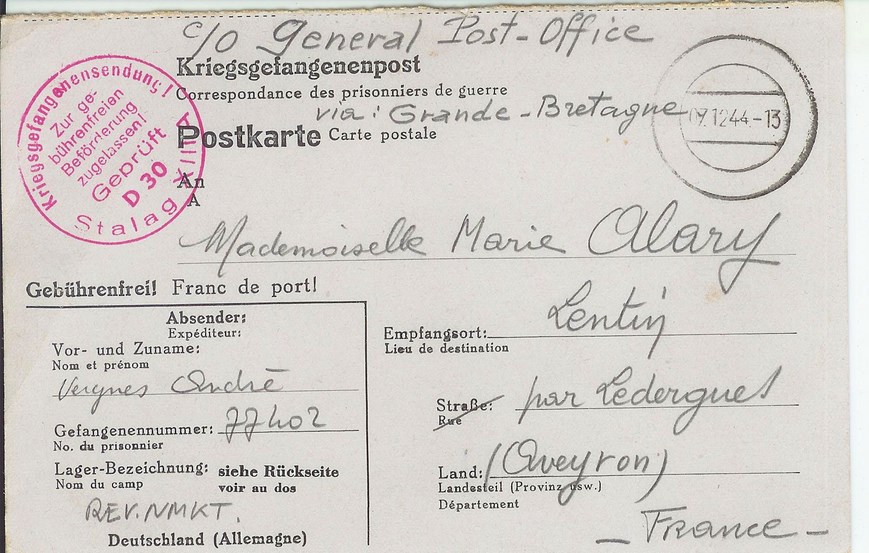 c/o General Post-Office
Kriegsgefangenenpost
Correspondance des prisonniers de guerre
via: Grande-Bretagne
Postkarte Carte postale
Kriegsgefangenensendung!
Zur ge-
bührenfreien
Beförderung
zugelassen!
Geprüft
D 30
Stalag XIII A
12.44.-13
An
A
Mademoiselle Marie Alary
Gebührenfrei! Franc de port!
Absender:
Expéditeur:
Vor- und Zuname:
Nom et prénom
Vergnes André
Gefangenennummer: 77402
No. du prisonnier
Lager-Bezeichnung: siehe Rückseite
Nom du camp voir au dos
REV. NMKT.
Deutschland (Allemagne)
Empfangsort: Lentin
Lieu de destination
Straße: par Ledergues
Rue
Land: (Aveyron)
Landesteil (Provinz usw.)
Département
- France -